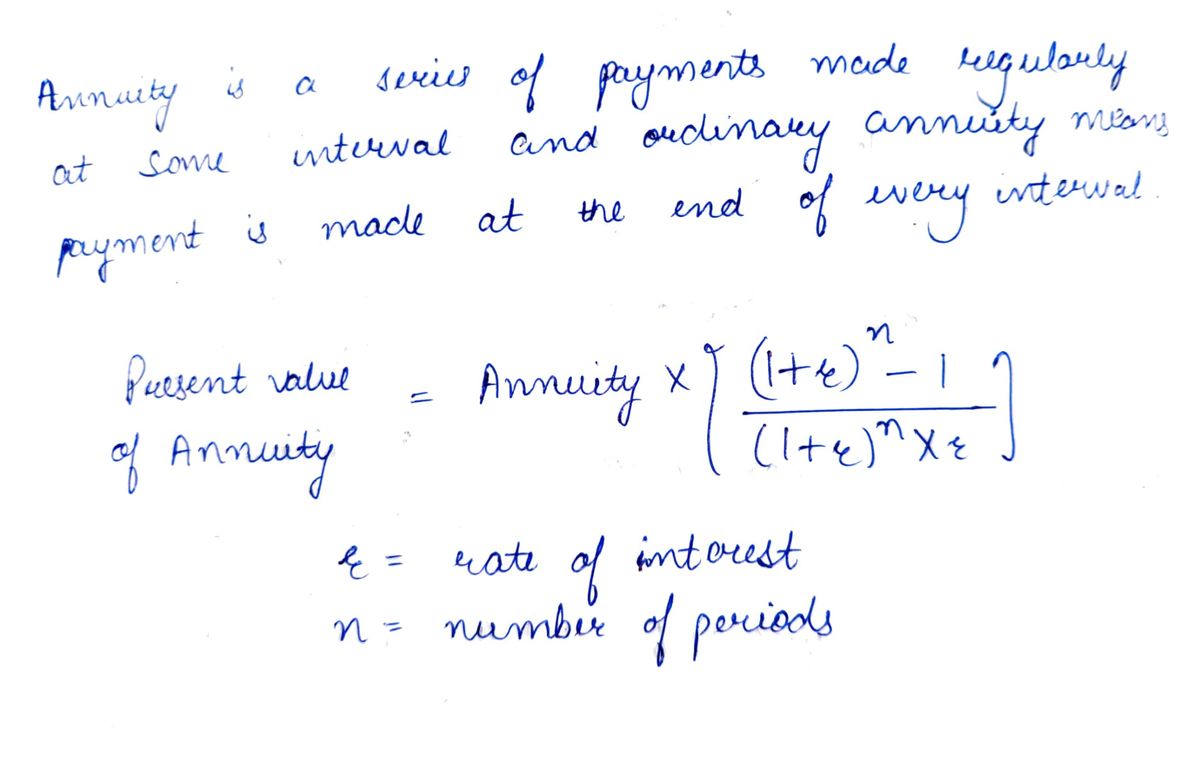 Annuity is a series of payments made regularly
at some interval and ordinary annuity means
payment is made at the end of every interval.
Present value of Annuity = Annuity × [ (1+r)^n - 1 / (1+r)^n × r ]
r = rate of interest
n = number of periods